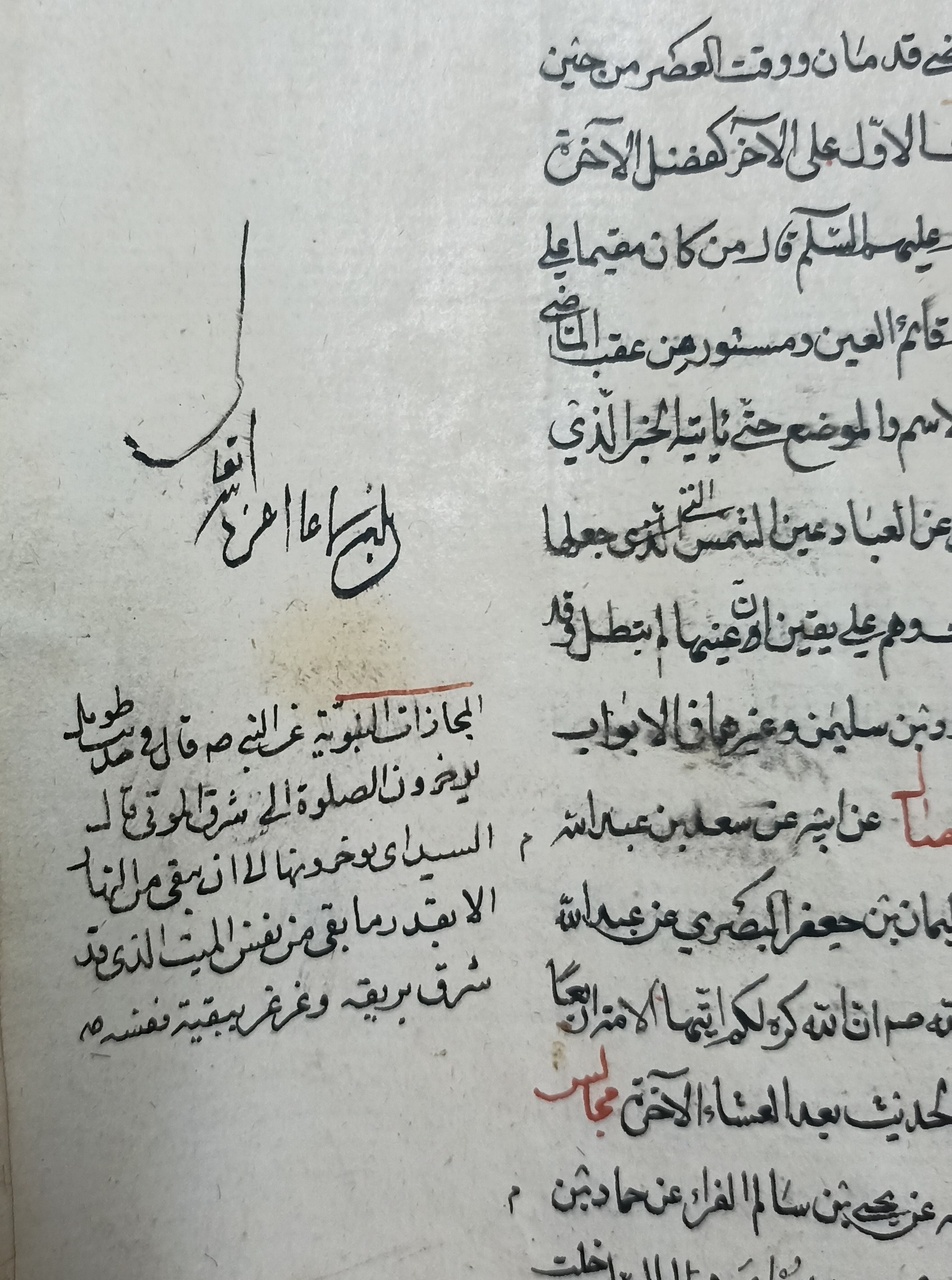 قد مضان ووقت العصر من حين
الاوّل على الآخر كفضل الآخرة
عليهم السّلم قال من كان مقيما على
قائم العين ومستور من عقب الماضى
والموضع حتّى يأتيه الخبر الّذي
عن العباد عين الشمس التى جعلها
وهم على يقين ان عينها لم يتطل وقد
بن سليمن وغيرهما في الابواب
عن ابيه عن سعد بن عبد الله
بن جعفر البصري عن عبد الله
ان الله كره لكم ايّتها الامة اربعا
الحديث بعد العشاء الآخرة مجالس
عن يحيى بن سالم الفراء عن حماد بن
بلغ سماعا اعزه الله تعا
المجازات النبويّة عن النبي ص قال في حديث طويل
يوخرون الصلوة الى شرق الموتى قال
السيد اى يوخرونها الى ان يبقى من النهار
الا بقدر ما بقى من نفس الميت الذى قد
شرق بريقه وغرغر ببقية نفسه